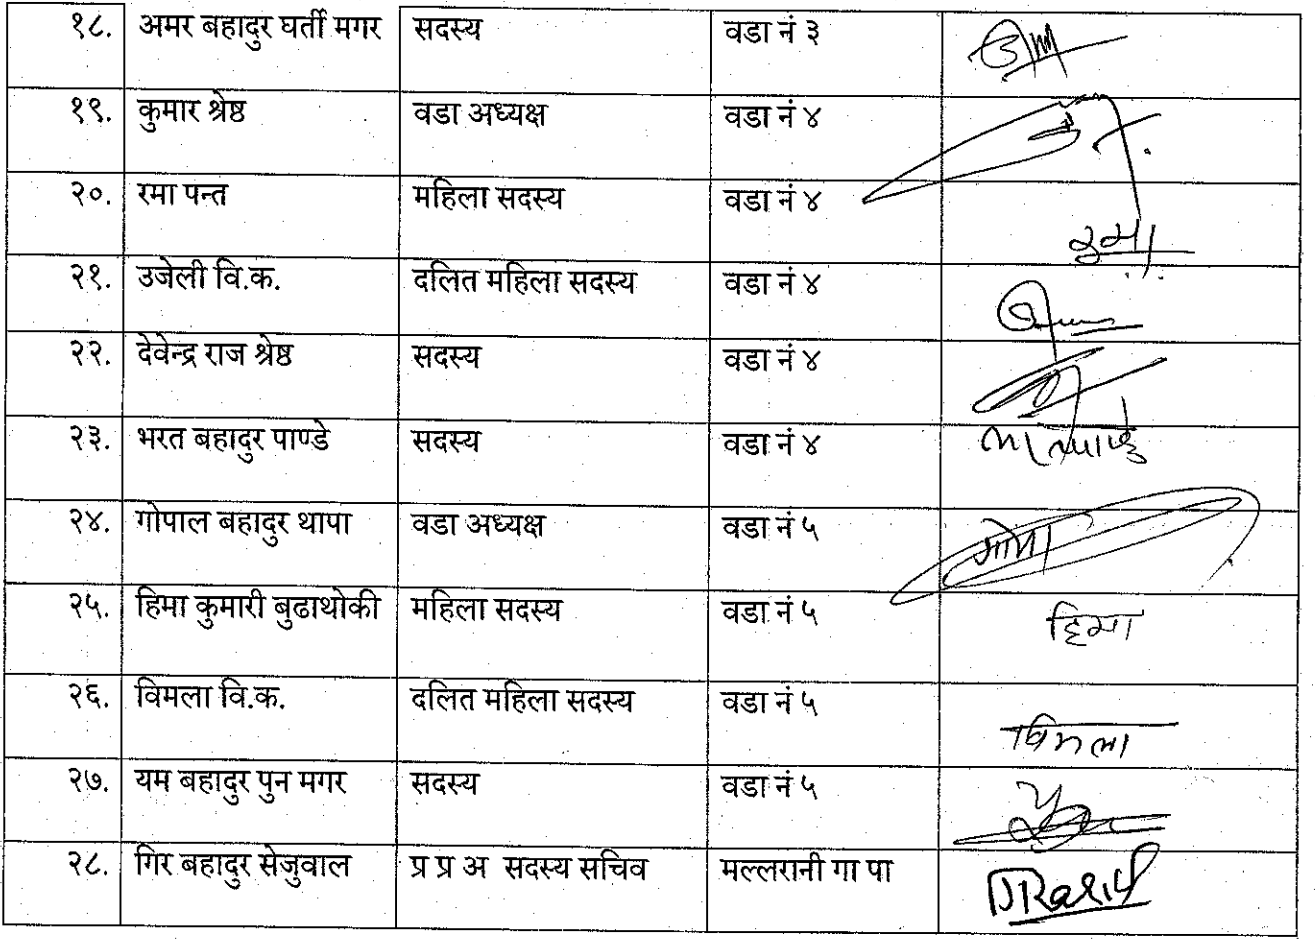 १८. अमर बहादुर घर्ती मगर सदस्य वडा नं ३
१९. कुमार श्रेष्ठ वडा अध्यक्ष वडा नं ४
२०. रमा पन्त महिला सदस्य वडा नं ४ रमा
२१. उजेली वि.क. दलित महिला सदस्य वडा नं ४
२२. देवेन्द्र राज श्रेष्ठ सदस्य वडा नं ४
२३. भरत बहादुर पाण्डे सदस्य वडा नं ४
२४. गोपाल बहादुर थापा वडा अध्यक्ष वडा नं ५
२५. हिमा कुमारी बुढाथोकी महिला सदस्य वडा नं ५ हिमा
२६. विमला वि.क. दलित महिला सदस्य वडा नं ५ विमला
२७. यम बहादुर पुन मगर सदस्य वडा नं ५
२८. गिर बहादुर सेजुवाल प्र प्र अ सदस्य सचिव मल्लरानी गा पा